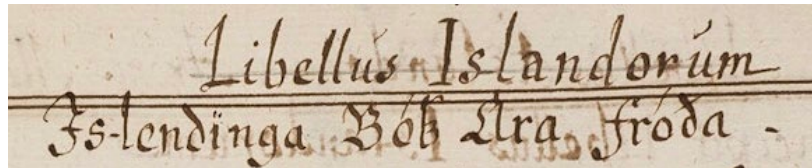 Libellus Islandorum
Is-lendinga Bók Ara fróða -